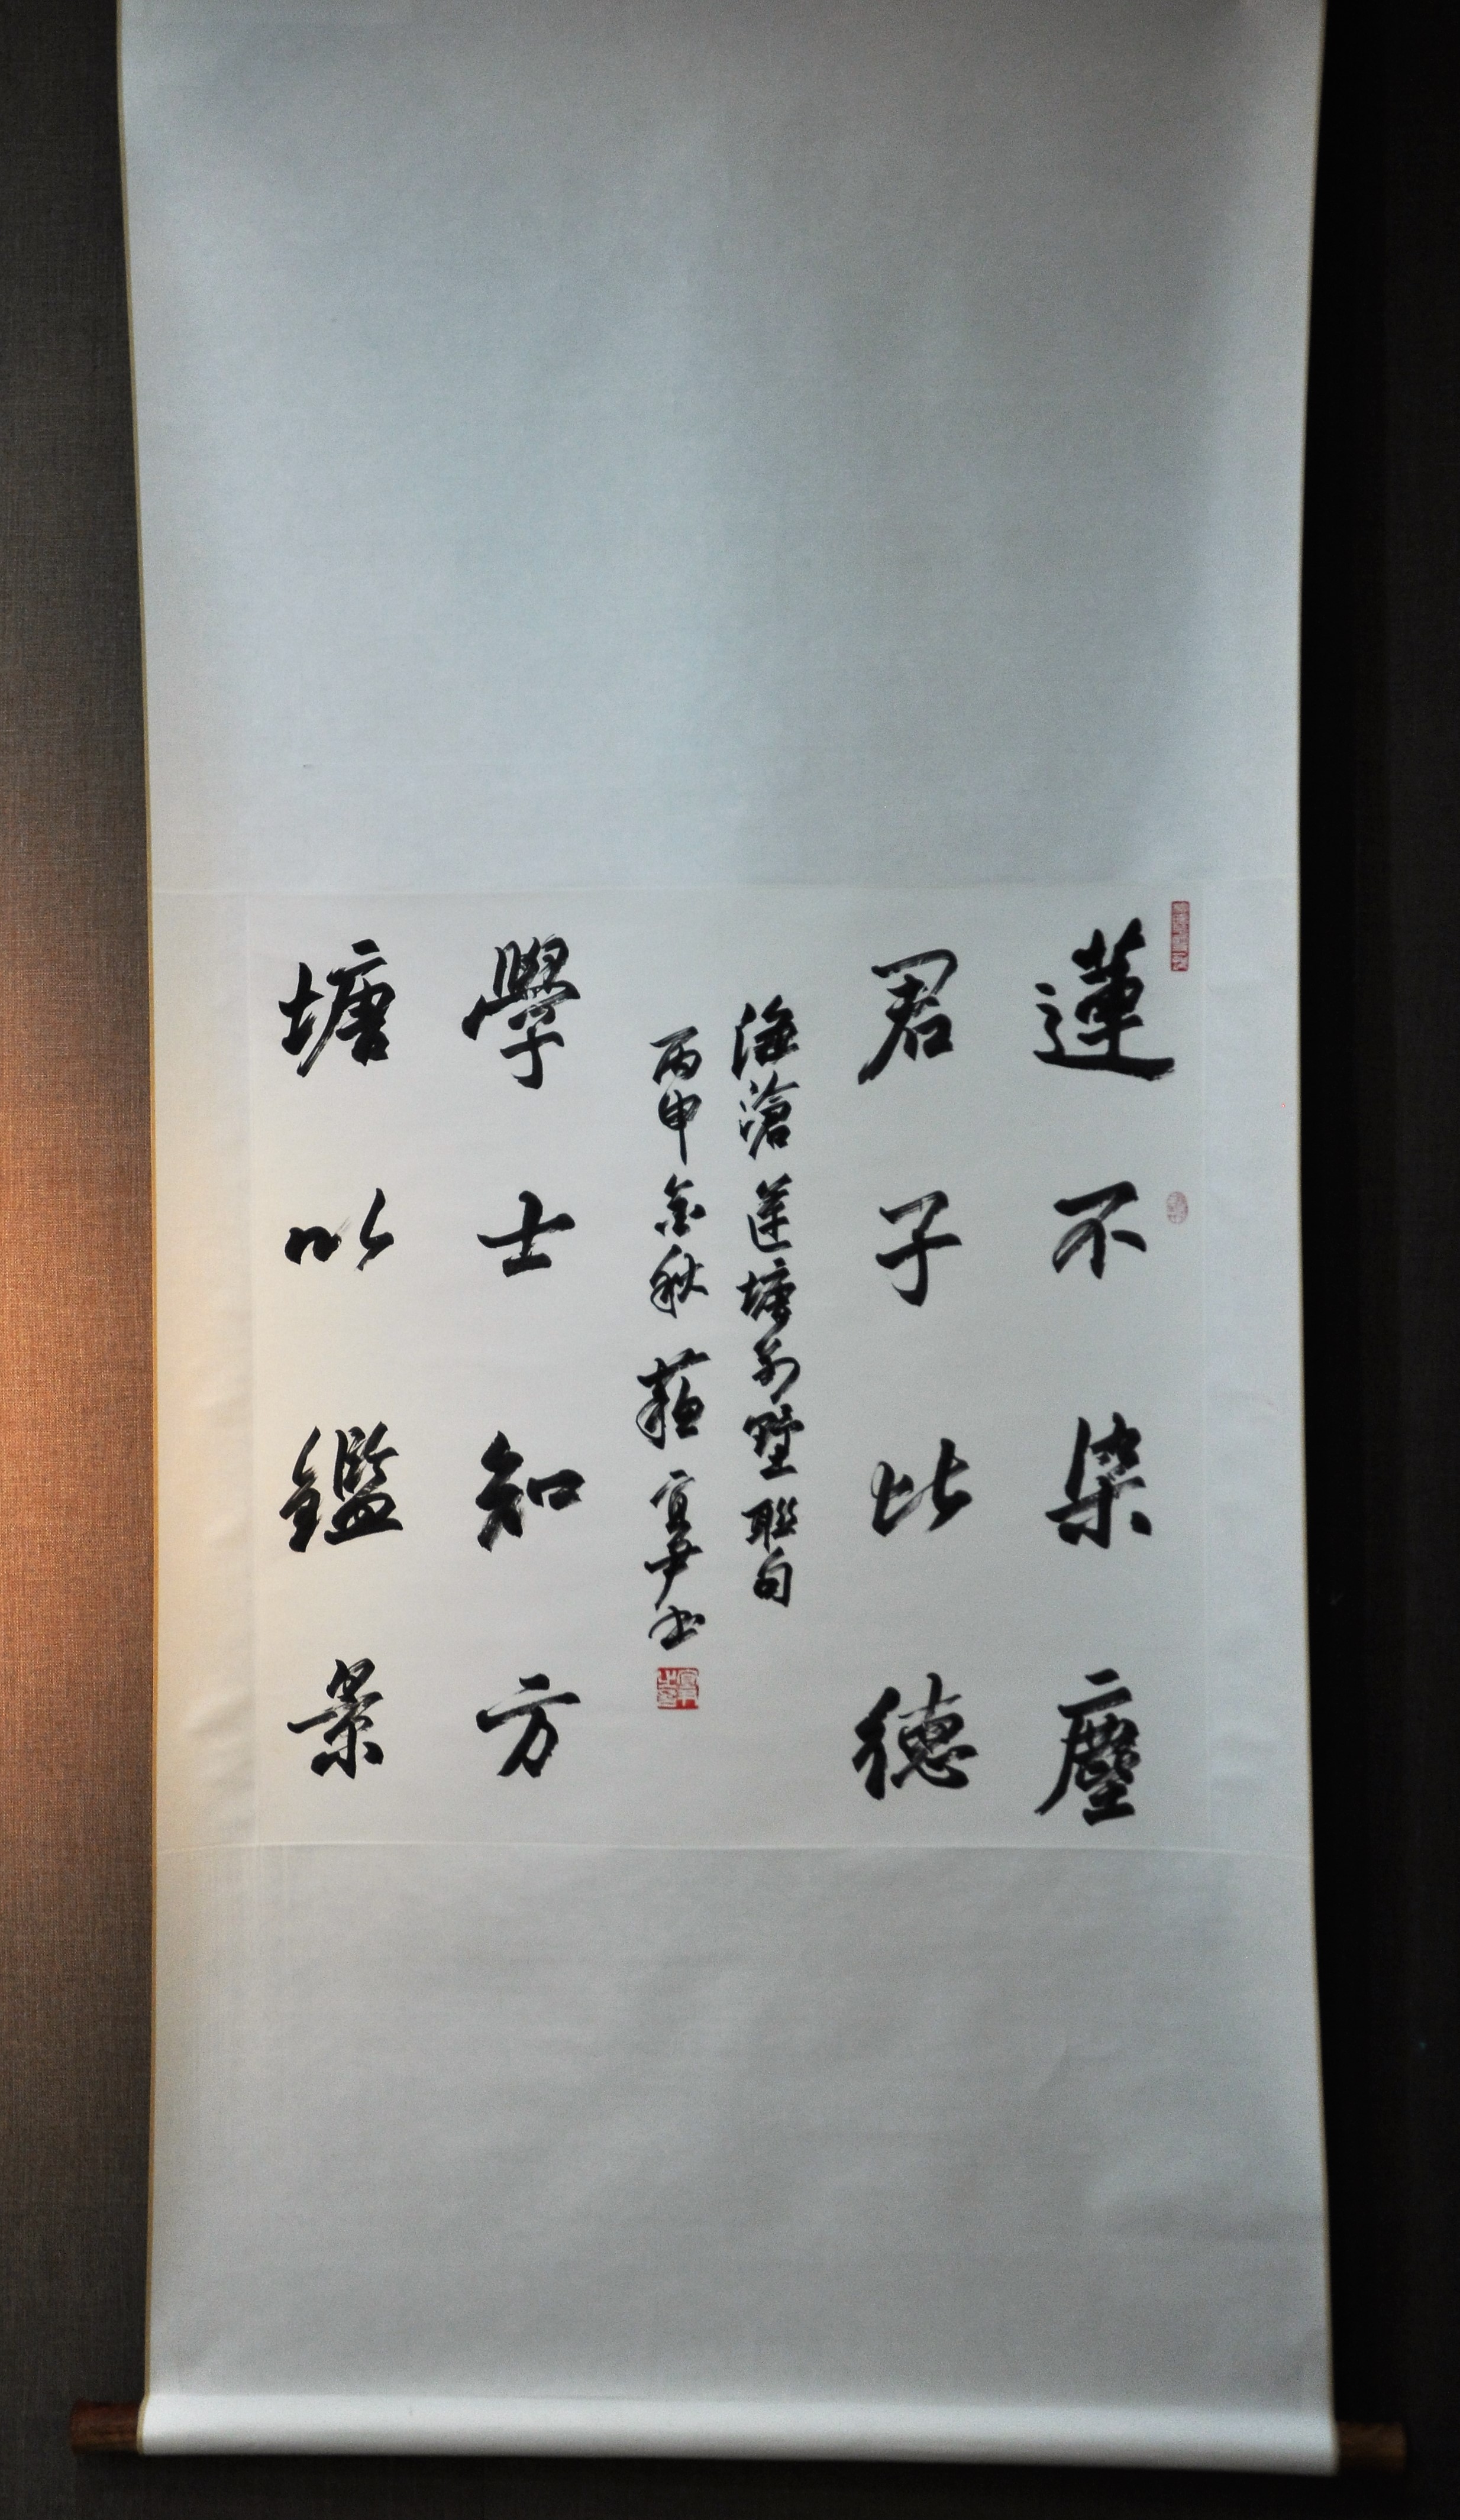 蓮不染塵
君子比德
海滄蓮塘別墅聯句
丙申金秋蘇宜尹書
學士知方
塘以鑑景